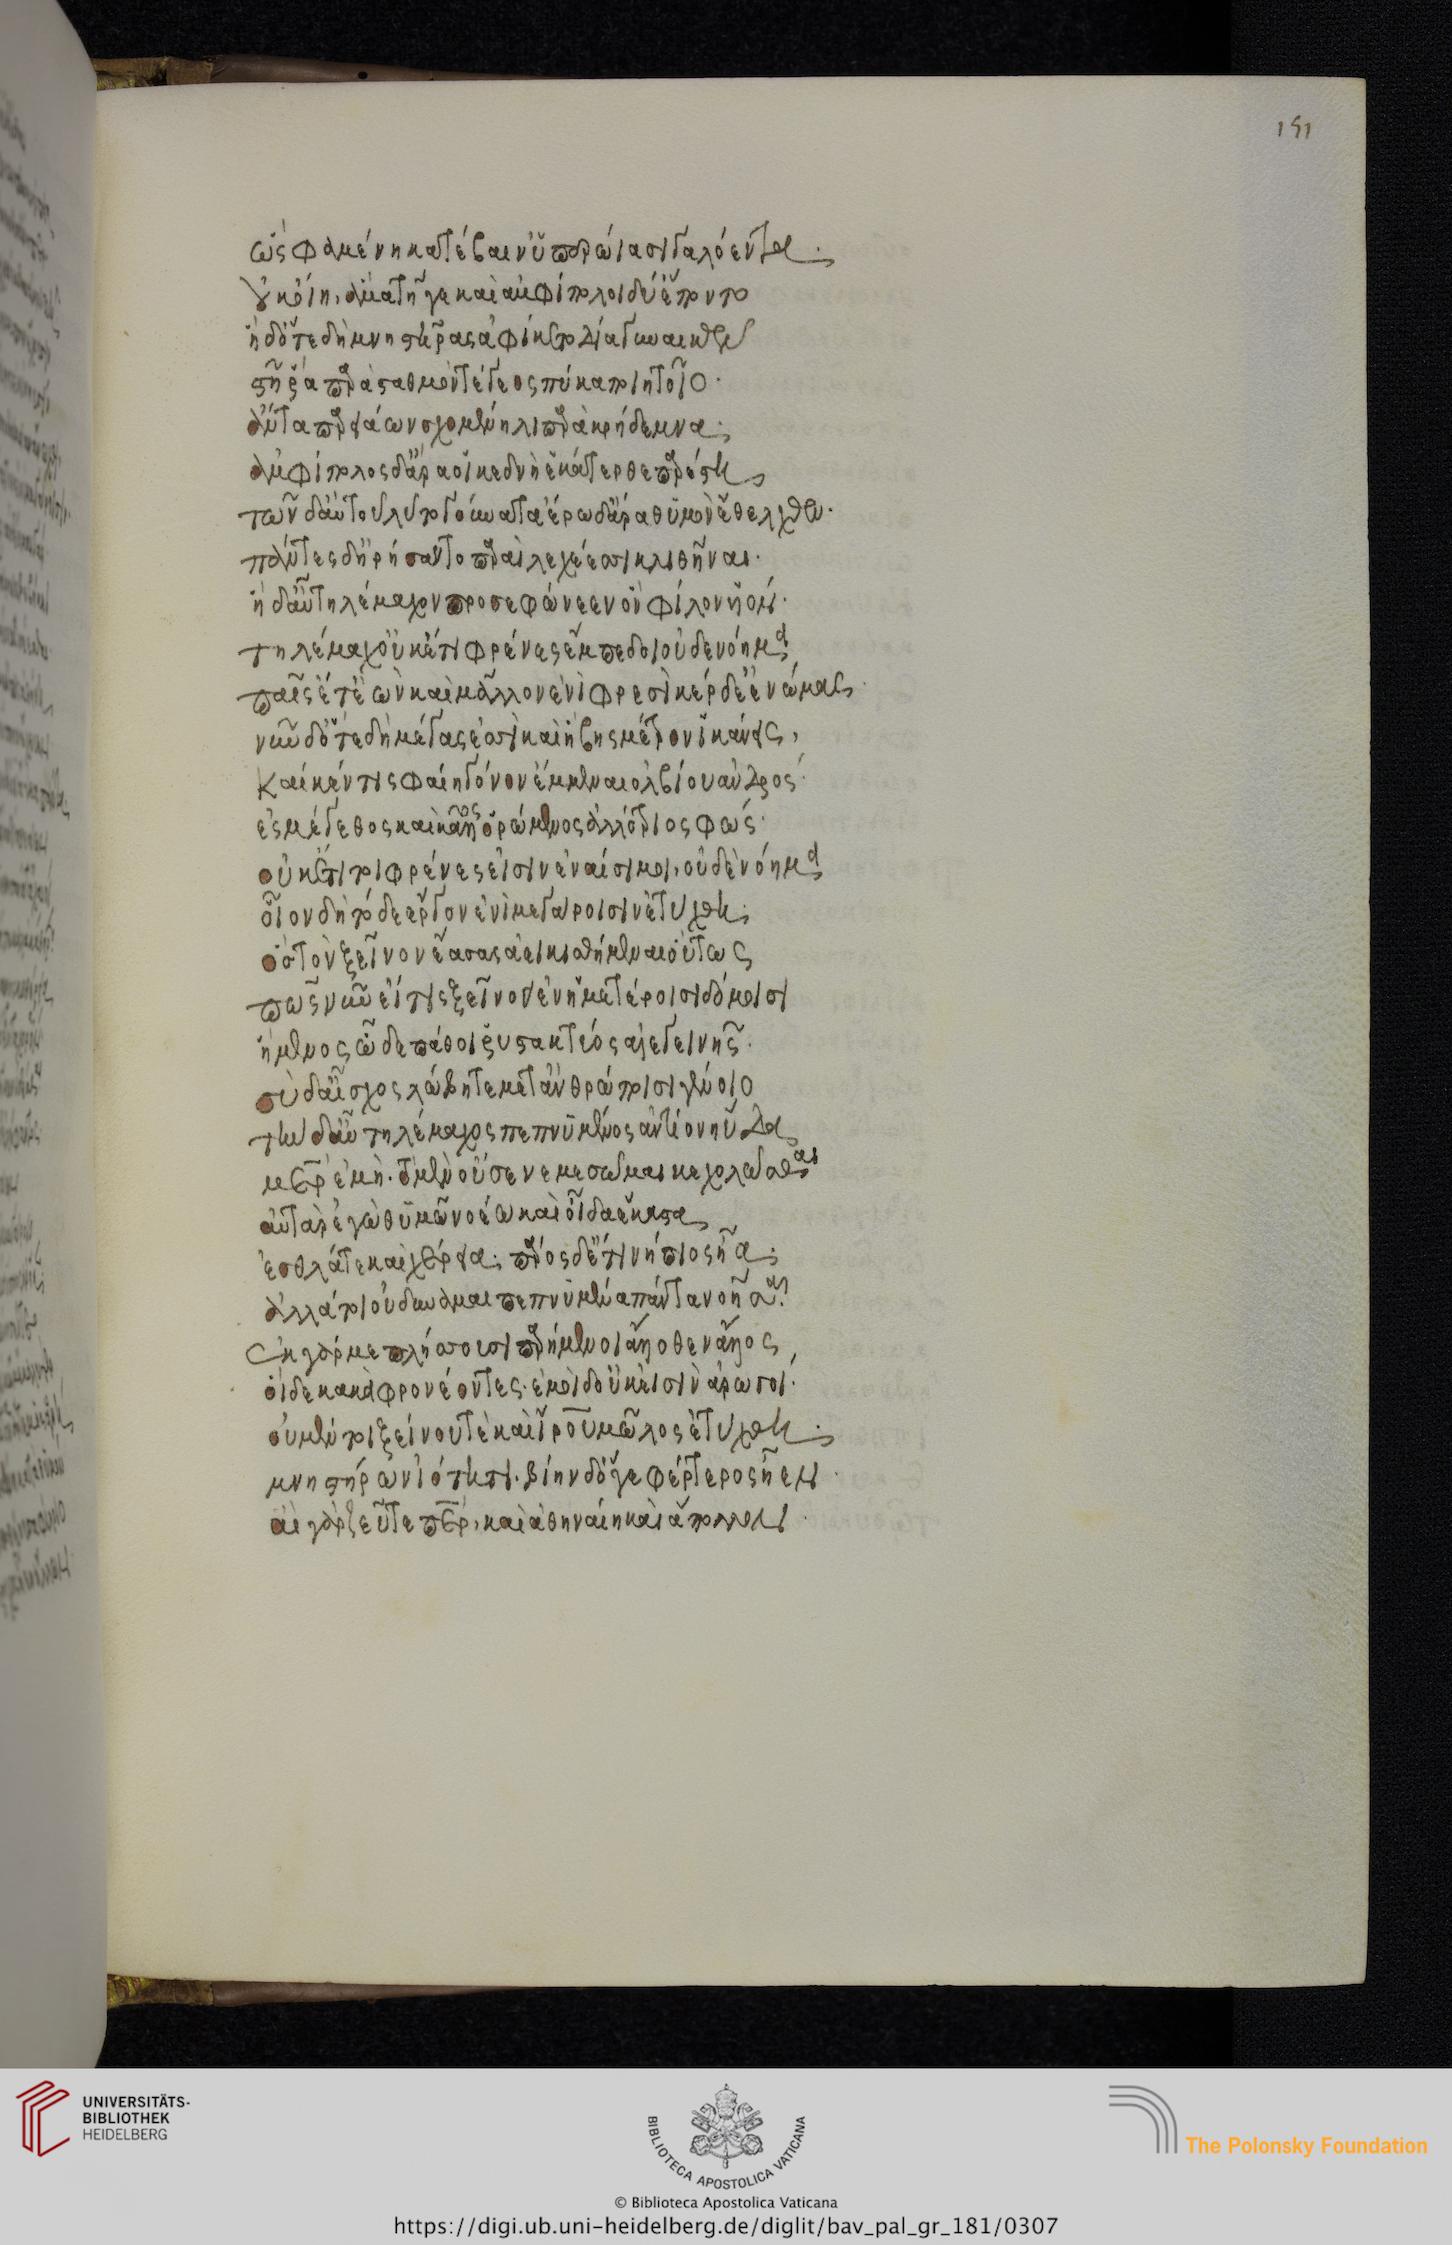 151
ὣς φαμένη κατέβαιν ὑπερώϊα σιγαλόεντα·
οὐκ οἴη, ἅμα τῆγε καὶ ἀμφίπολοι δύ ἕποντο
ἡ δ ὅτε δὴ μνηστῆρας ἀφίκετο δῖα γυναικῶν
στῆ ῥα παρὰ σταθμὸν τέγεος πύκα ποιητοῖο·
ἄντα παρειάων σχομένη λιπαρὰ κρήδεμνα·
ἀμφίπολος δ ἄρα οἱ κεδνὴ ἑκάτερθε παρέστη
τῶν δ αὐτοῦ λύτο γούνατα ἔρω δ ἄρα θυμὸν ἔθελχθεν·
πάντες δ ἠρήσαντο παραὶ λεχέεσσι κλιθῆναι·
ἡ δ αὖ τηλέμαχον προσεφώνεεν ὃν φίλον υἱόν·
τηλέμαχ οὐκέτι φρένες ἔμπεδοι οὐδὲ νόημα
παῖς ἔτ ἐὼν καὶ μᾶλλον ἐνὶ φρεσὶ κέρδε ἐνώμας·
νῦν δ ὅτε δὴ μέγας ἐσσὶ καὶ ἥβης μέτρον ἱκάνεις,
καί κέν τις φαίη γόνον ἔμμεναι ὀλβίου ἀνδρὸς
ἐς μέγεθος καὶ κάλλος ὁρώμενος ἀλλότριος φώς·
οὐκέτι τοι φρένες εἰσὶν ἐναίσιμοι, οὐδὲ νόημα
οἷον δὴ τόδε ἔργον ἐνὶ μεγάροισιν ἐτύχθη·
ὃς τὸν ξεῖνον ἔασας ἀεικισθήμεναι οὕτως
πῶς νῦν εἴ τις ξεῖνος ἐν ἡμετέροισι δόμοισι
ἥμενος ὧδε πάθοι ῥυστακτύος ἀλεγεινῆς·
σοὶ δ αἶσχος λώβη τε μετ ἀνθρώποισι γένοιο
τὴν δ αὖ τηλέμαχος πεπνυμένος ἀντίον ηὔδα
μῆτερ ἐμὴ· τὸ μὲν οὔ σε νεμεσσῶμαι κεχολῶσθαι
αὐτὰρ ἐγὼ θυμῷ νοέω καὶ οἶδα ἕκαστα
ἐσθλά τε καὶ χέρεια· πάρος δ ἔτι νήπιος ἦα·
ἀλλά τοι οὐ δύναμαι πεπνυμένα πάντα νοῆσαι·
ἐκ γάρ με πλήσσουσι παρήμενοι ἄλλοθεν ἄλλος
οἵδε κακὰ φρονέοντες· ἐμοὶ δ οὐκ εἰσὶν ἀρωγοί·
οὐ μέν τοι ξείνου τε καὶ ἴρου μῶλος ἐτύχθη·
μνηστήρων ἰότητι· βίην δ ὅγε φέρτερος ἦεν·
αἲ γὰρ ζεῦ τε πάτερ, καὶ ἀθηναίη καὶ ἄπολλον·
UNIVERSITÄTS-
BIBLIOTHEK
HEIDELBERG
BIBLIOTECA APOSTOLICA VATICANA
The Polonsky Foundation
© Biblioteca Apostolica Vaticana
https://digi.ub.uni-heidelberg.de/diglit/bav_pal_gr_181/0307